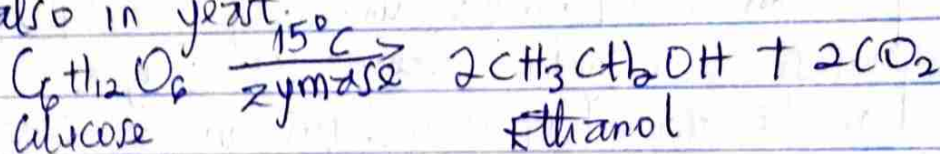 also in yeast.
C6H12O6 15°C zymase 2CH3CH2OH + 2CO2
Glucose Ethanol